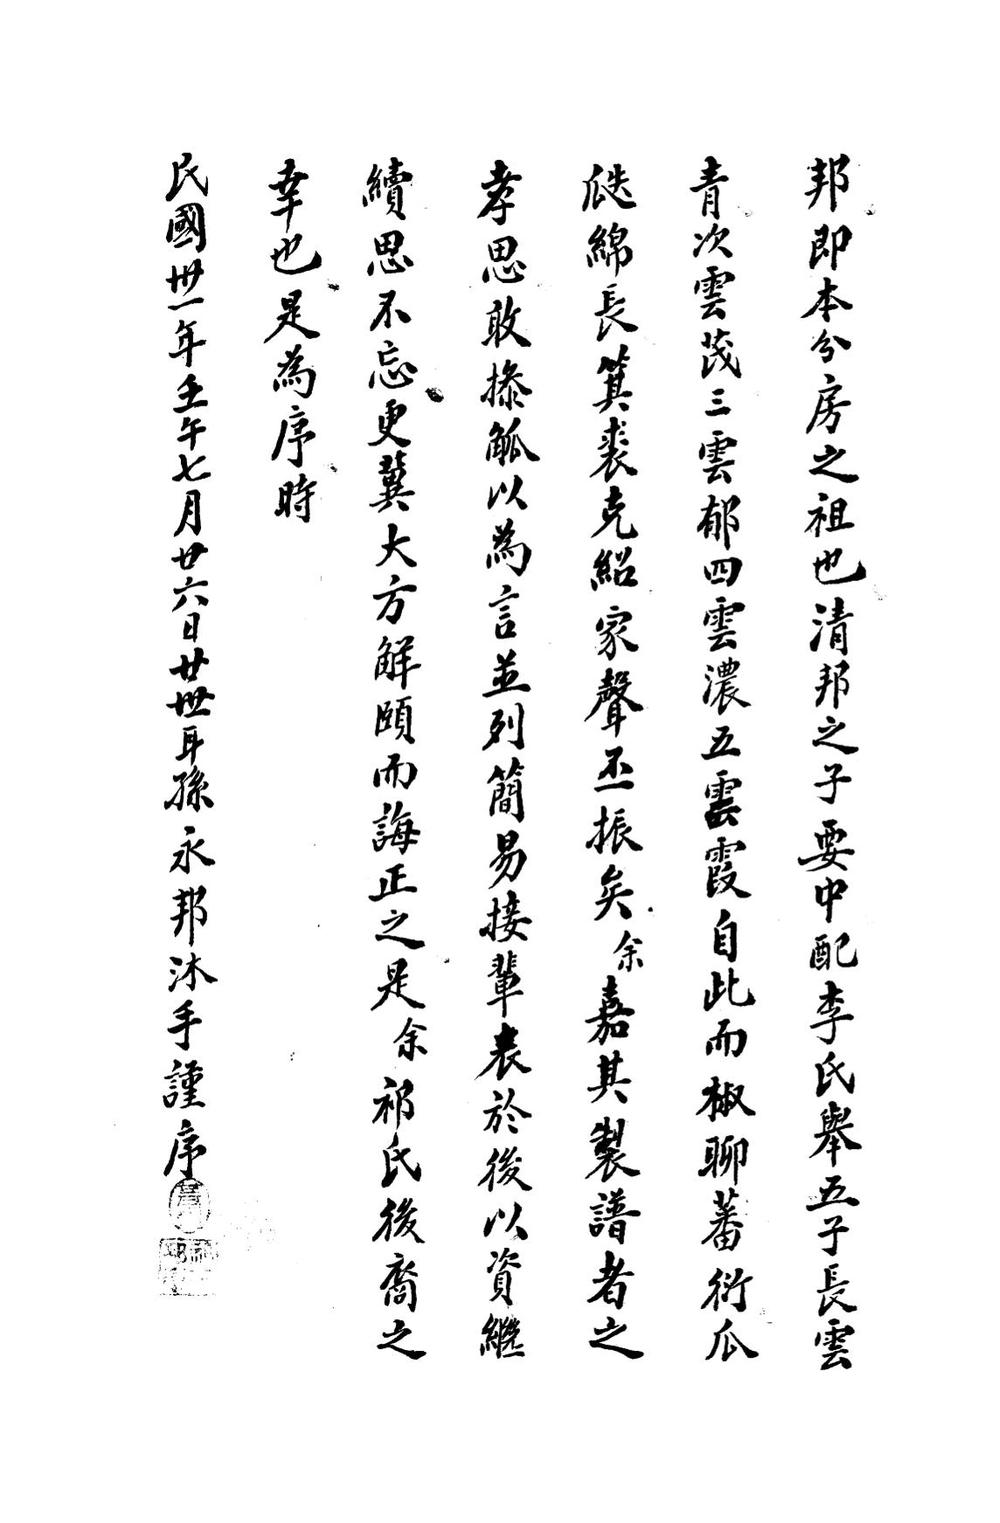 邦即本分房之祖也清邦之子要中配李氏舉五子長雲
青次雲茂三雲郁四雲濃五雲霞自此而椒聊蕃衍瓜
瓞綿長箕裘克紹家聲丕振矣余嘉其製譜者之
孝思敢搽觚以為言並列簡易接輩表於後以資繼
續思不忘更冀大方解頤而誨正之是余祁氏後裔之
幸也是為序時
民國卅一年壬午七月廿六日廿世耳孫永邦沐手謹序